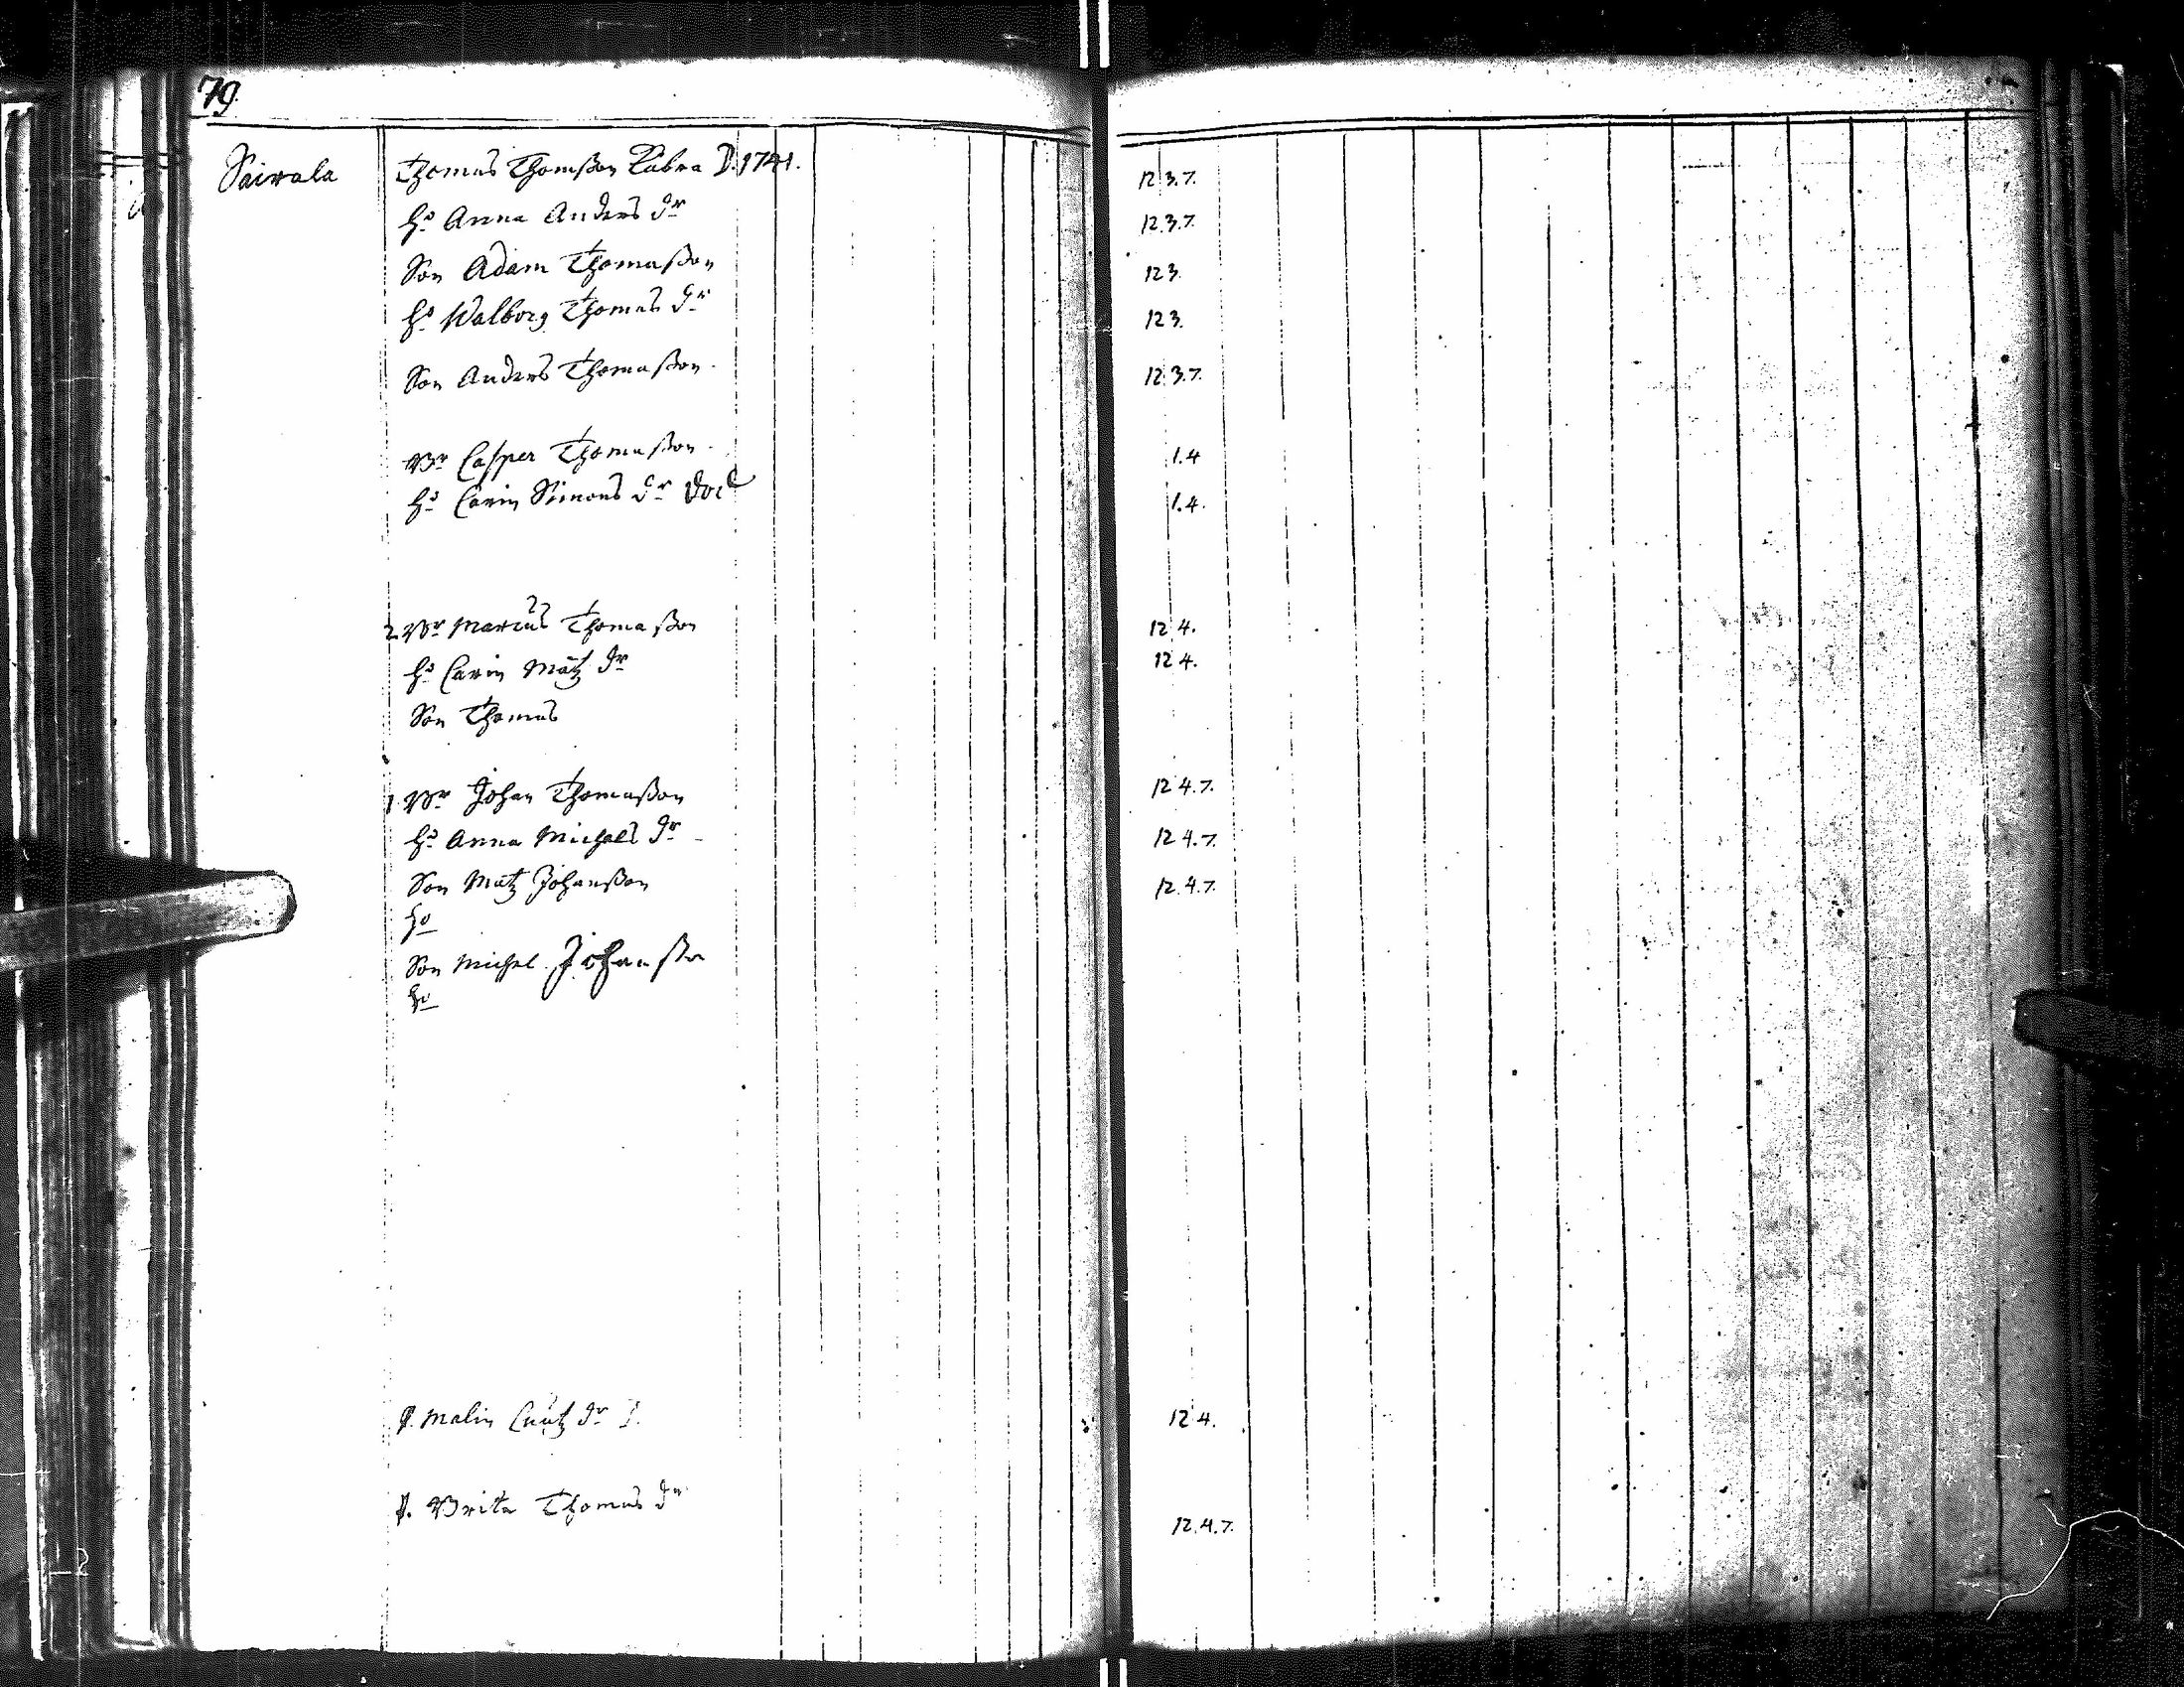 79
Sairala Thomas Thomsson Kabra D. 1741. 12 3.7.
ho Anna Anders dr 12.3.7.
Son Adam Thomasson 123.
ho Walborg Thomas dr 123.
Son Anders Thomasson. 12.3.7.
Br Casper Thomasson. 1.4
ho Carin Simons dr död 1.4.
2 Br Marcus Thomasson 12 4.
ho Carin Matz dr 12 4.
Son Thomas
1. Br Johan Thomasson 12 4.7.
ho Anna Michels dr 12 4.7.
Son Matz Johansson 12.4.7.
ho
Son Michel Johansson
ho
Malin dr 12 4.
Brita Thomas dr 12.4.7.